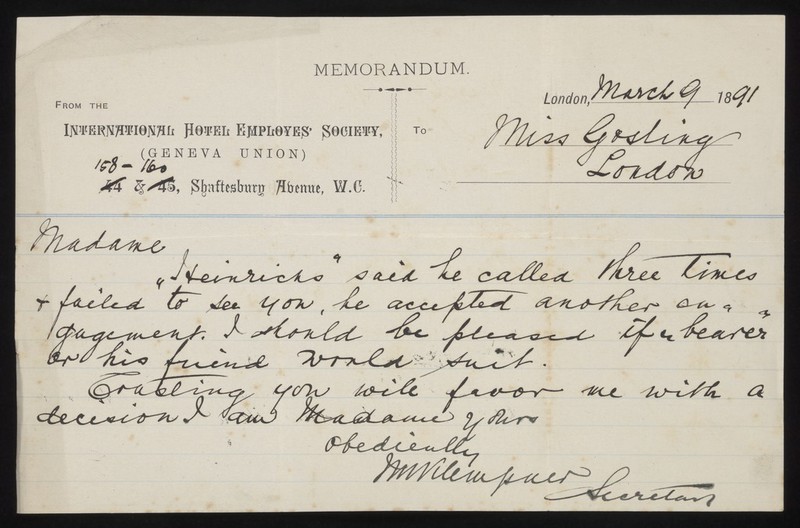 MEMORANDUM.
FROM THE
INTERNATIONAL HOTEL EMPLOYES' SOCIETY,
(GENEVA UNION)
158 - 160
44 & 45, Shaftesbury Avenue, W.C.
London, March 9 1891
To Miss Gosling
London
Madame
"Heinrichs" said he called three times
& failed to see you, he accepted another en-
gagement. I should be pleased if "bearer"
or his friend would suit.
Trusting you will favor me with a
decision I am Madame yours
Obediently
Secretary